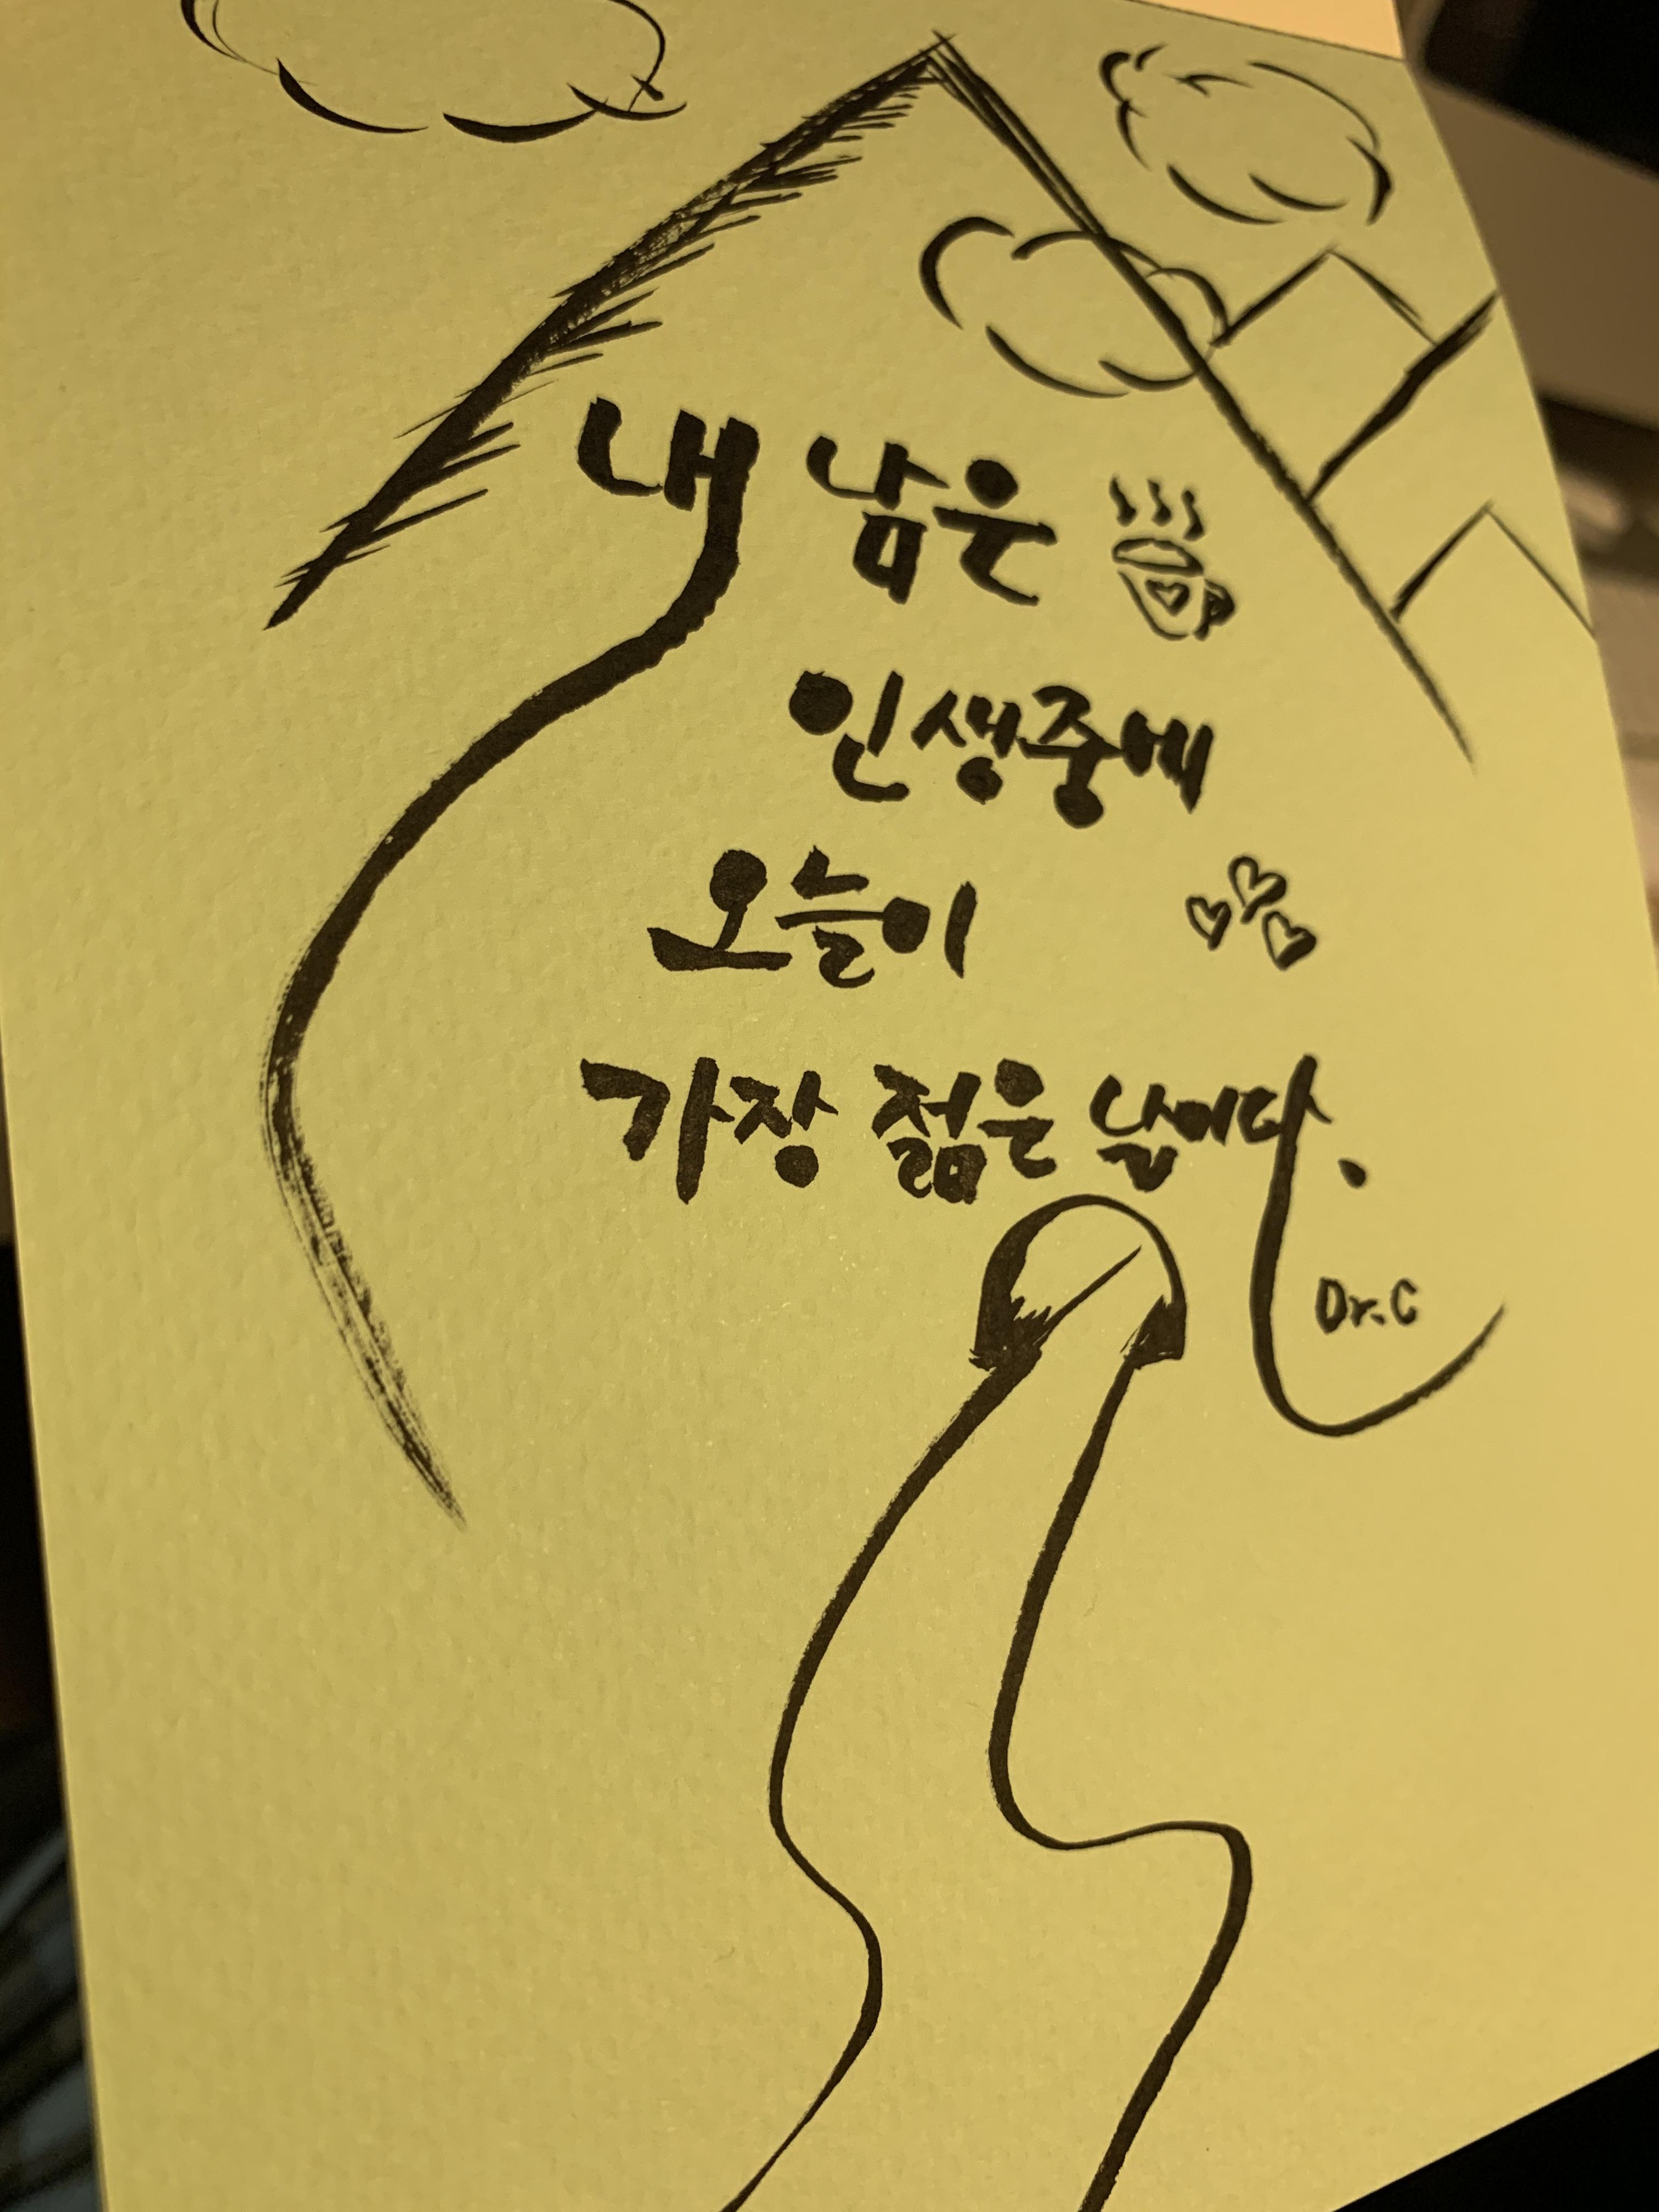 내 남은
인생중에
오늘이
가장 젊은 날이다.
Dr.C